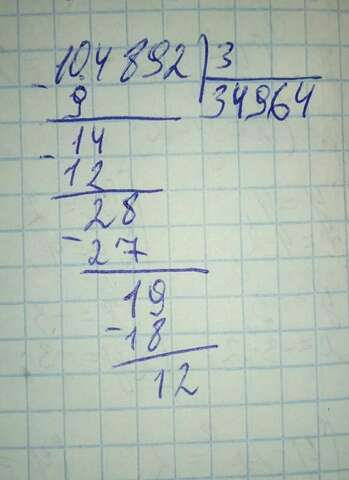 104892 3
- 9 34964
14
- 12
28
- 27
19
- 18
12